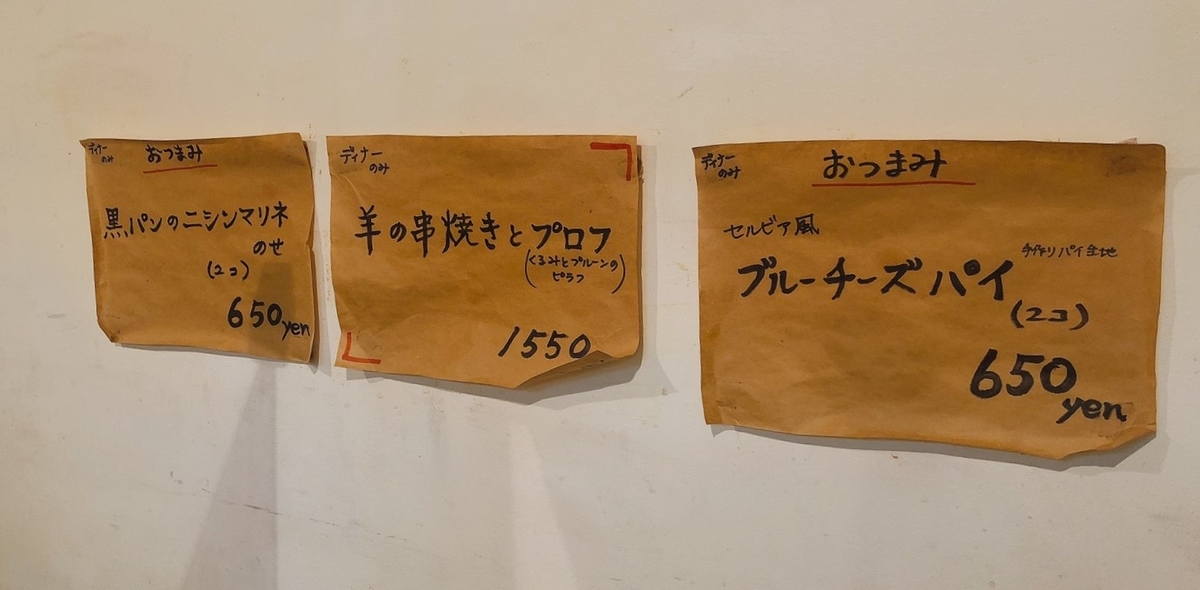 ディナー
のみ
おつまみ
黒パンのニシンマリネ
のせ
(2コ)
650yen
ディナー
のみ
羊の串焼きとプロフ
(くるみとプルーンの
ピラフ)
1550
ディナー
のみ
おつまみ
セルビア風
手作りパイ生地
ブルーチーズパイ
(2コ)
650
yen